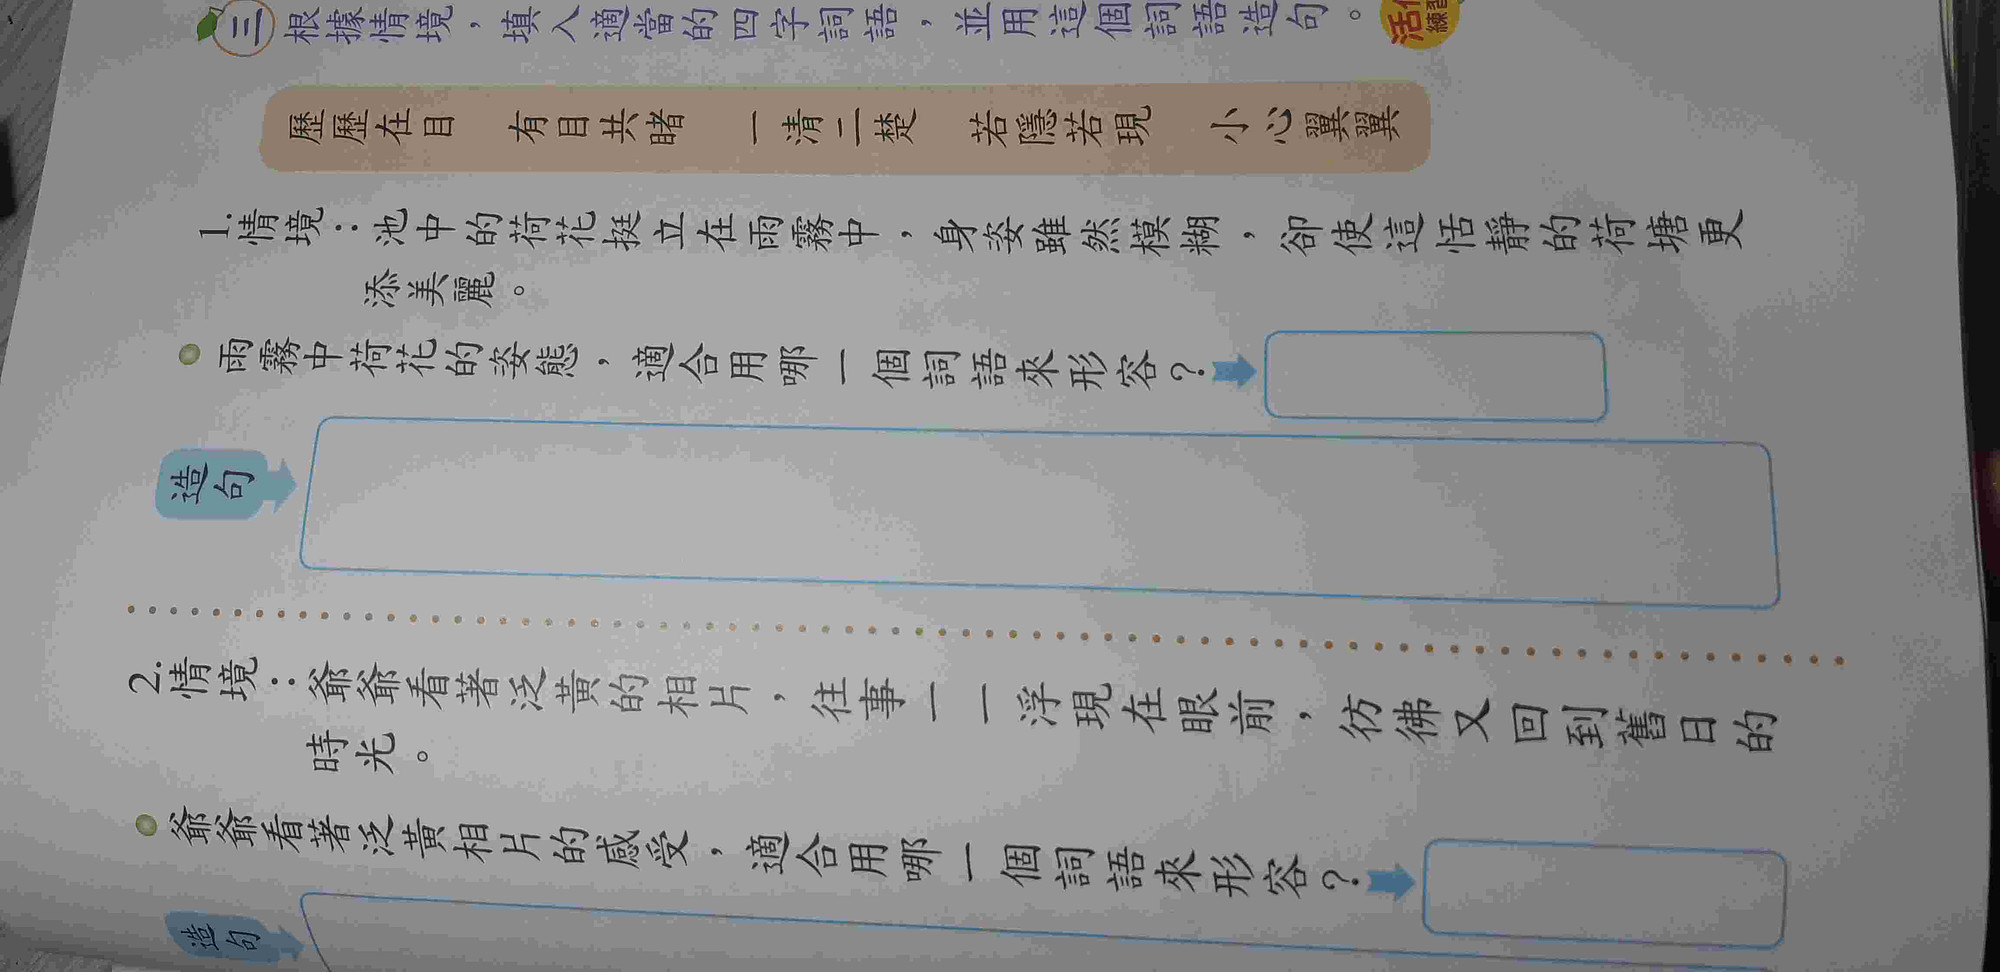 三 根據情境，填入適當的四字詞語，並用這個詞語造句。
歷歷在目 有目共睹 一清二楚 若隱若現 小心翼翼
1. 情境：池中的荷花挺立在雨霧中，身姿雖然模糊，卻使這恬靜的荷塘更
添美麗。
雨霧中荷花的姿態，適合用哪一個詞語來形容？
造句
2. 情境：爺爺看著泛黃的相片，往事一一浮現在眼前，彷彿又回到舊日的
時光。
爺爺看著泛黃相片的感受，適合用哪一個詞語來形容？
造句